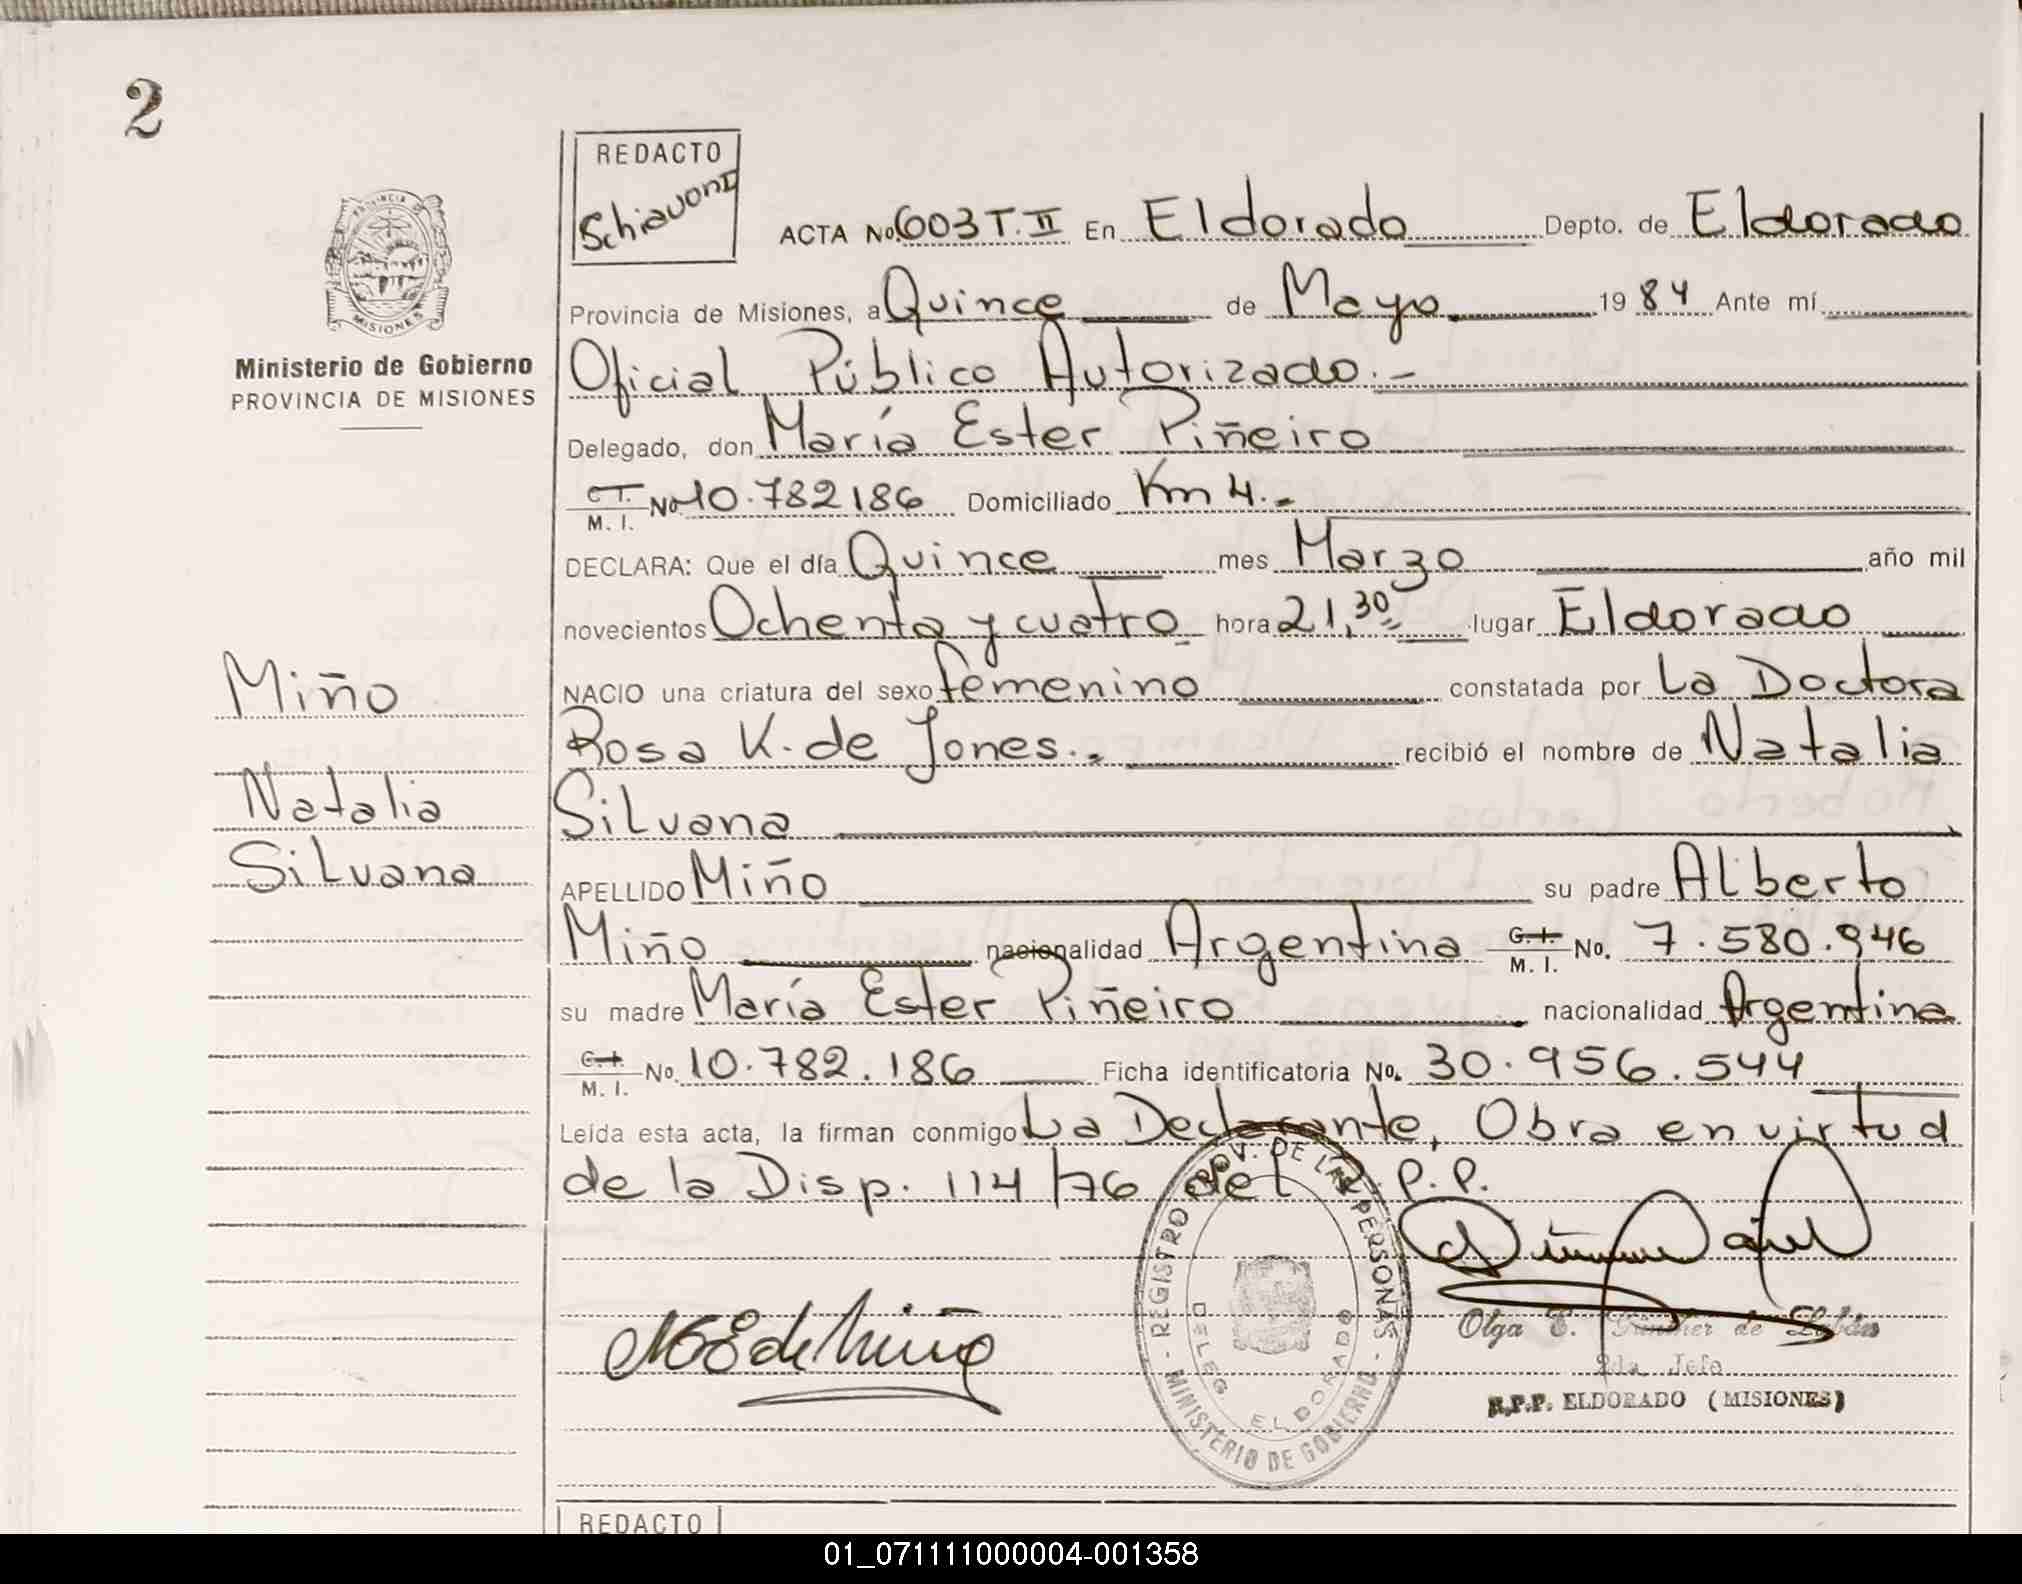 2
REDACTO
Schiavoni
ACTA No. 603 T. II En Eldorado Depto. de Eldorado
Provincia de Misiones, a Quince de Mayo 1984 Ante mí
Ministerio de Gobierno
PROVINCIA DE MISIONES
Oficial Público Autorizado.-
Delegado, don María Ester Piñeiro
C.I. M. I. No 10.782186 Domiciliado Km 4.-
DECLARA: Que el día Quince mes Marzo año mil
novecientos Ochenta y cuatro hora 21,30 lugar Eldorado
Miño
NACIO una criatura del sexo femenino constatada por La Doctora
Rosa K. de Jones.- recibió el nombre de Natalia
Natalia
Silvana
Silvana
APELLIDO Miño su padre Alberto
Miño nacionalidad Argentina C.I. M. I. No. 7.580.946
su madre María Ester Piñeiro nacionalidad Argentina
C.I. M. I. No. 10.782.186 Ficha identificatoria No. 30.956.544
Leída esta acta, la firman conmigo La Declarante, Obra en virtud
de la Disp. 114/76 del R.P.P.
REGISTRO PROV. DE LAS PERSONAS - MINISTERIO DE GOBIERNO -
DELEG. ELDORADO
M E de Miño
Olga E. de
2da. Jefe
R.P.P. ELDORADO (MISIONES)
REDACTO
01_071111000004-001358
PROVINCIA DE
MISIONES